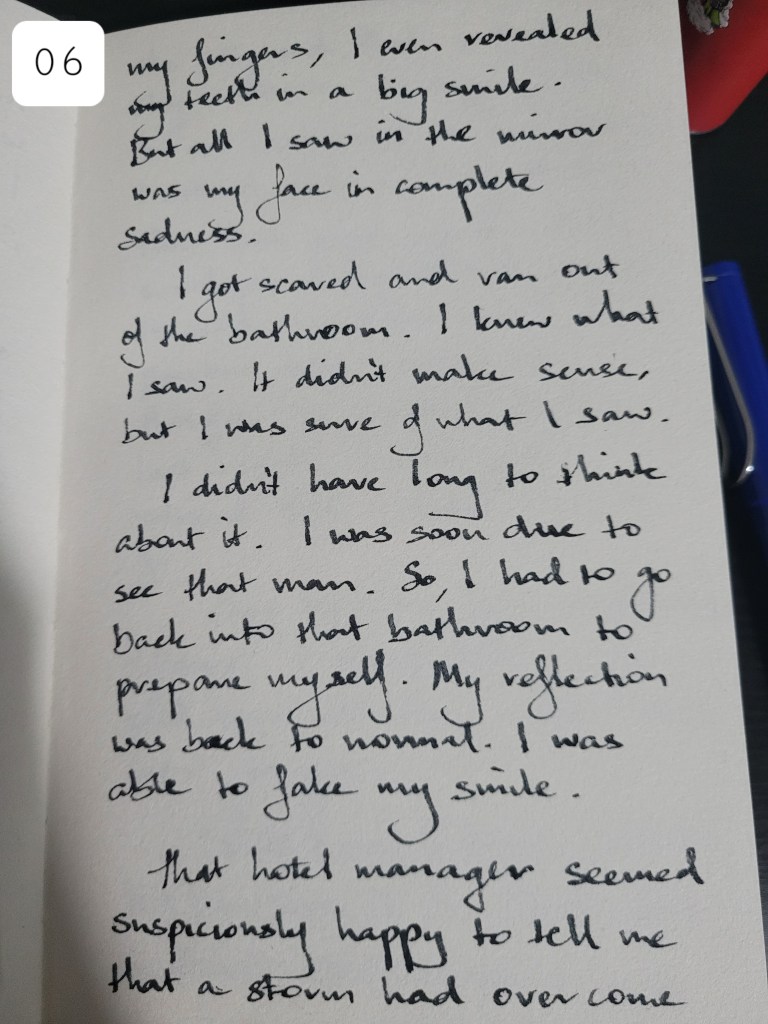 06
my fingers, I even revealed
my teeth in a big smile.
But all I saw in the mirror
was my face in complete
sadness.
I got scared and ran out
of the bathroom. I knew what
I saw. It didn't make sense,
but I was sure of what I saw.
I didn't have long to think
about it. I was soon due to
see that man. So, I had to go
back into that bathroom to
prepare myself. My reflection
was back to normal. I was
able to fake my smile.
That hotel manager seemed
suspiciously happy to tell me
that a storm had overcome